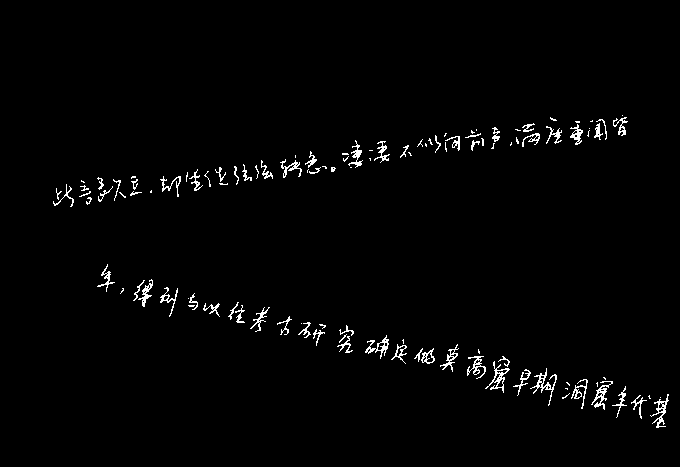 此言良久立,却坐促弦弦转急。凄凄不似向前声,满座重闻皆
年,得到与以往考古研究确定的莫高窟早期洞窟年代基